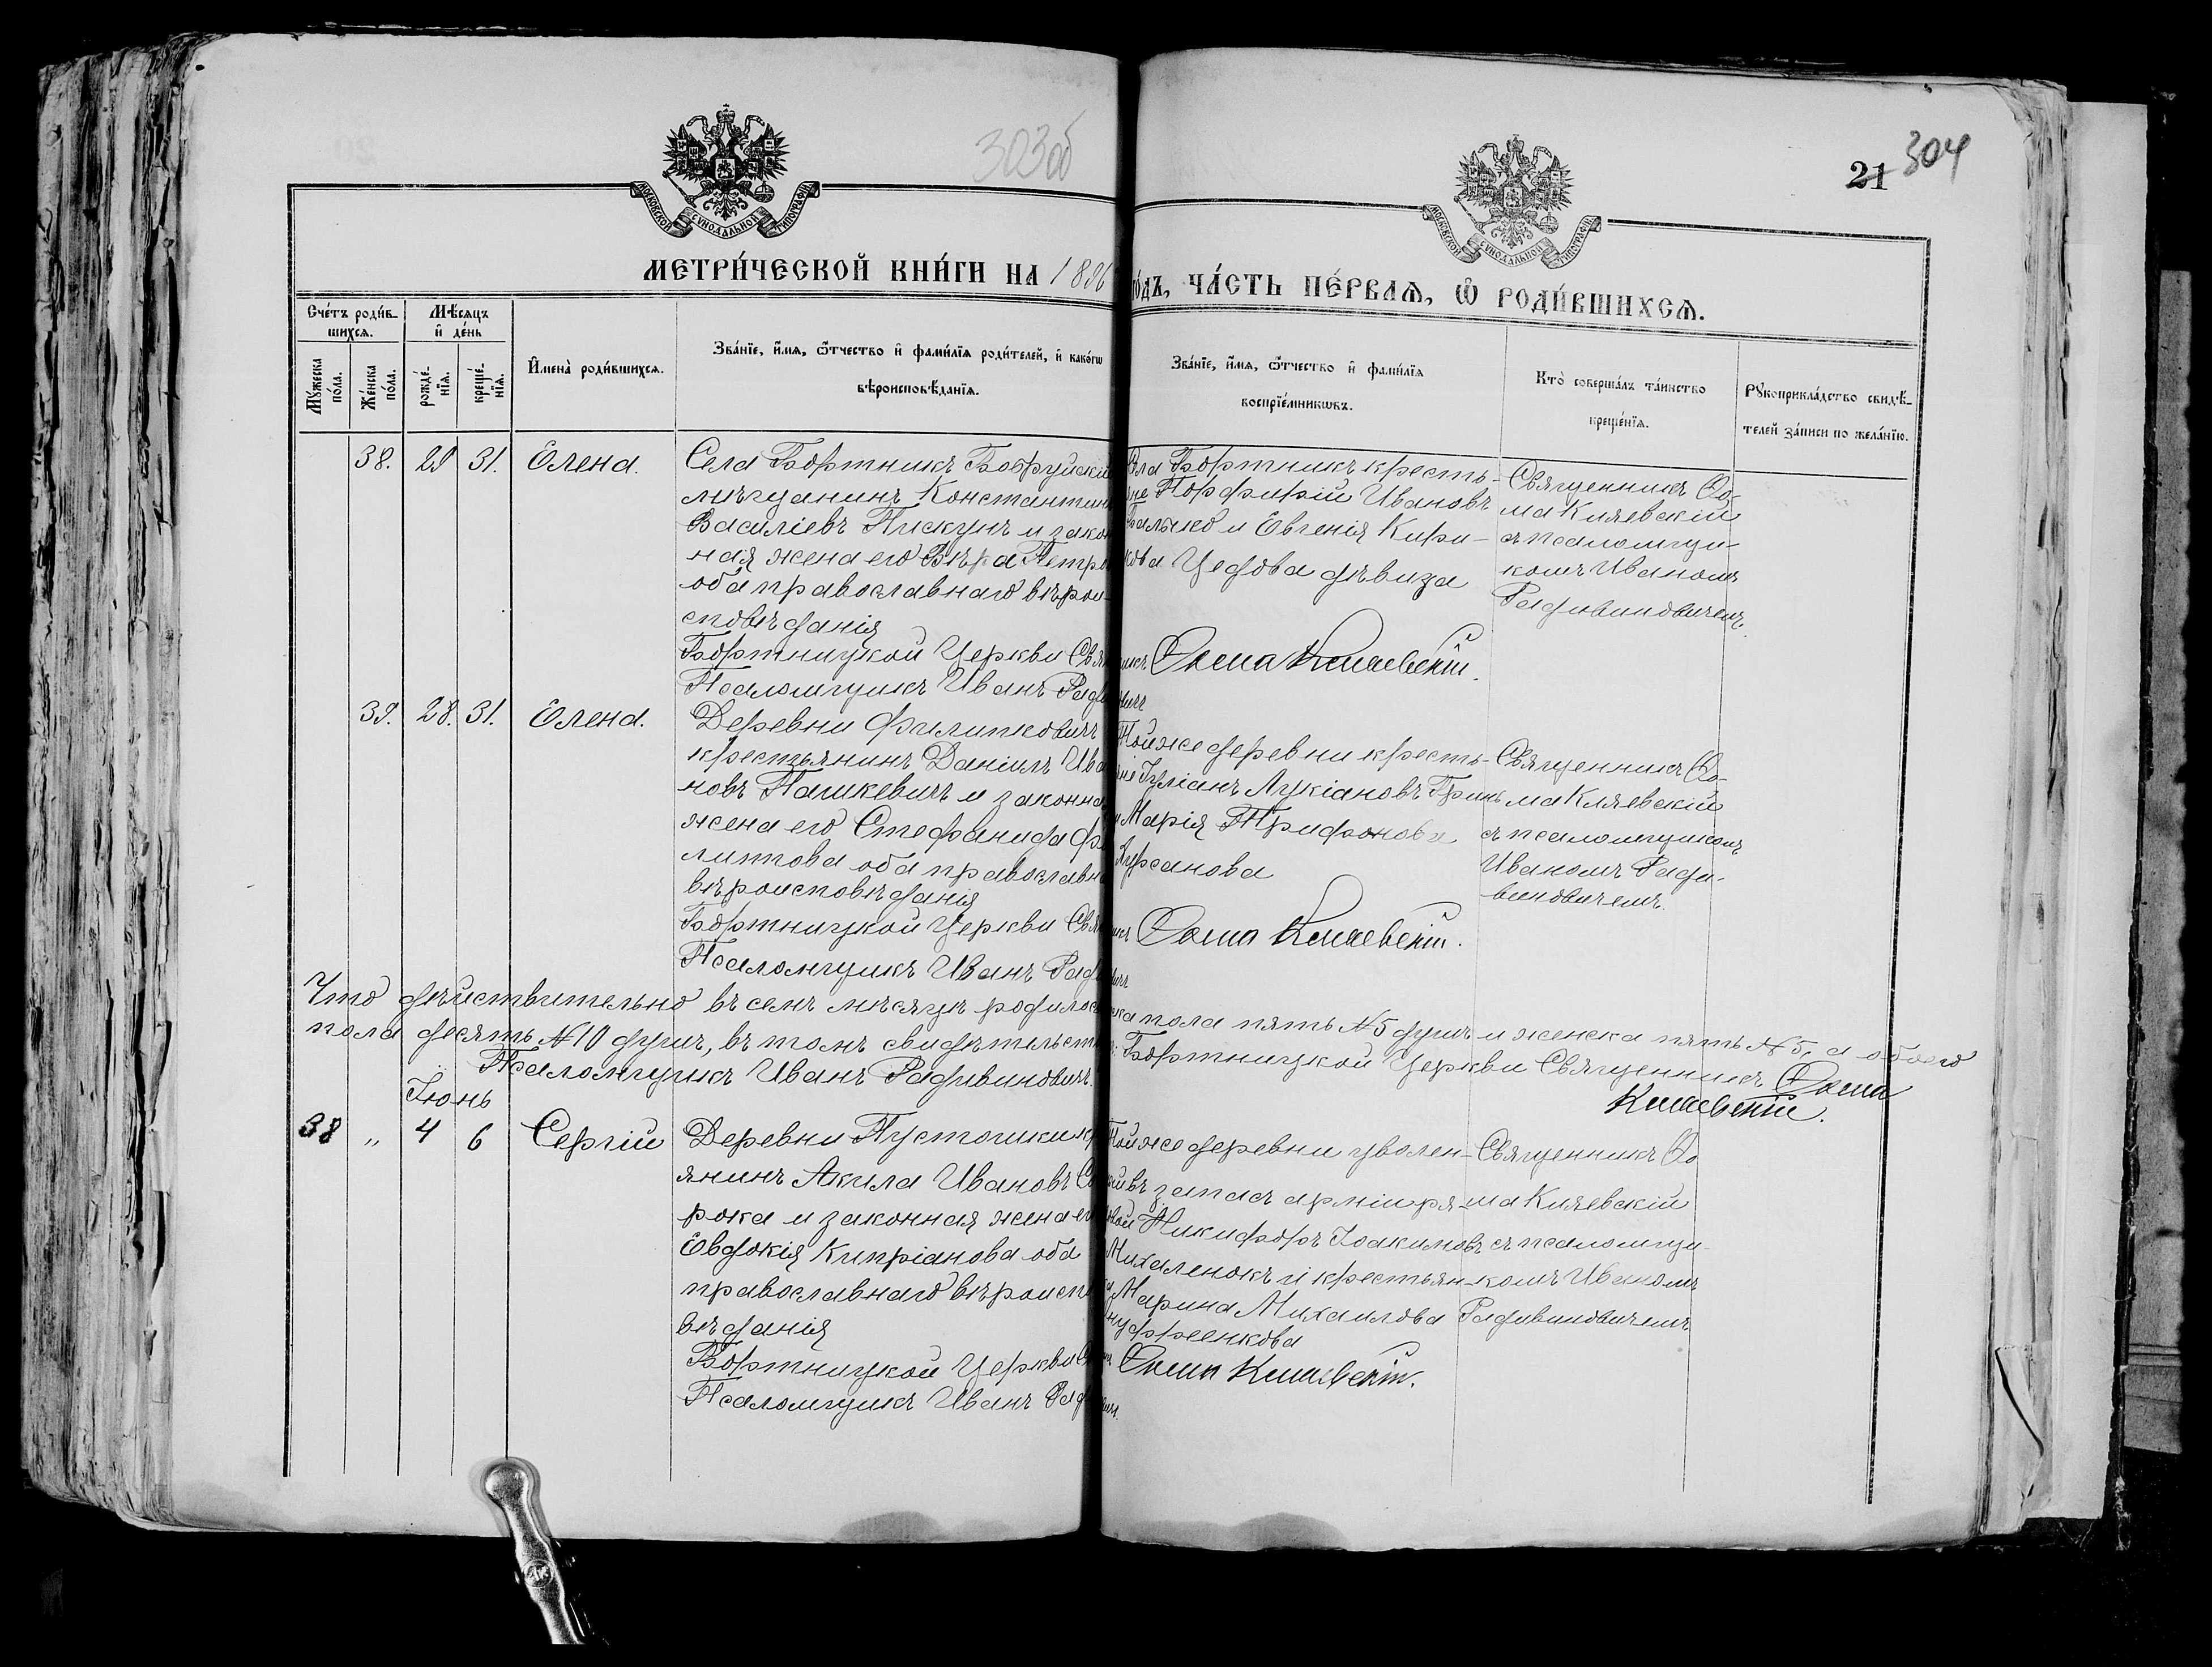 303об
21 304
МОСКОВСКОЙ СѴНОДАЛЬНОЙ ТИПОГРАФІИ
МОСКОВСКОЙ СѴНОДАЛЬНОЙ ТИПОГРАФІИ
МЕТРИ́ЧЕСКОЙ КНИ́ГИ НА 1896
го́дъ, ЧА́СТЬ ПЕ́РВАѦ, Ѽ РОДИ́ВШИХСѦ.
Сче́тъ роди́в-
шихсѧ.
Мꙋжеска по́ла.
Же́нска по́ла.
Мѣ́сѧцъ
и҆ де́нь
рожде́-нїѧ.
креще́-нїѧ.
И҆мена̀ роди́вшихсѧ.
Зва́нїе, и҆́мѧ, ѻ҆́тчество и҆ фами́лїѧ роди́телей, и҆ како́гѡ
вѣроисповѣ́данїѧ.
Зва́нїе, и҆́мѧ, ѻ҆́тчество и҆ фами́лїѧ
воспрїе́мникѡвъ.
Кто̀ соверша́лъ та́инство
креще́нїѧ.
Рꙋкоприкла́дство свидѣ́-
телей за́писи по жела́нїю.
38. 29 31. Елена.
Села Бортникъ Бобруйскій
мѣщанинъ Константинъ
Василіевъ Пискунъ и закон
ная жена его Вѣра Петрова
оба православнаго вѣрои-
сповѣданія
Бортницкой Церкви Свя
Псаломщикъ Иванъ Рад
Села Бортникъ кресть-
яне Порфирій Ивановъ
Валько и Евгенія Кири-
кова Цедова дѣвица
Ѳома Кляевскій.
Священникъ Ѳо-
ма Кляевскій
съ псаломщи-
комъ Иваномъ
Радивиновичемъ.
39. 28. 31. Елена.
Деревни Филипковичъ
крестьянинъ Даніилъ Ива
новъ Пашкевичъ и законна
жена его Стефанида Фи
липпова оба православна
вѣроисповѣданія
Бортницкой Церкви Свя
Псаломщикъ Иванъ Рад
Той же деревни кресть-
яне Іуліанъ Лукіановъ Гринь
и Марія Трифонова
Курсанова
Ѳома Кляевскій.
Священникъ Ѳо-
ма Кляевскій
съ псаломщикомъ
Иваномъ Ради-
виновичемъ.
Что дѣйствительно въ семъ мѣсяцѣ родилось мужеска пола пять №5 душъ и женска пять №5, а обоего
пола десять №10 душъ, въ томъ свидѣтельств Бортницкой Церкви Священникъ Ѳома
Псаломщикъ Иванъ Радивиновичъ. Кляевскій.
Іюнь
38 „ 4 6 Сергій
Деревни Пустошки кр
янинъ Акила Ивановъ Со
рока и законная жена его
Евдокія Кипріанова оба
православнаго вѣроиспо
вѣданія
Бортницкой Церкви Свя
Псаломщикъ Иванъ Рад
Той же деревни уволен-
ный въ запасъ арміи ря-
довой Никифоръ Іоакимовъ
Михаленокъ и крестьян-
ка Марина Михаилова
Онуфреенкова
Ѳома Кляевскій.
Священникъ Ѳо
ма Кляевскій
съ псаломщи-
комъ Иваномъ
Радивиновичемъ